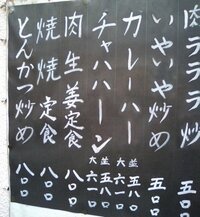 いやいや炒め 五〇〇
カレーハー 並 五八〇
大 六一〇
チャハハーン
大 六一〇
肉生姜定食 八〇〇
焼焼定食 八〇〇
とんかつ炒め 八〇〇